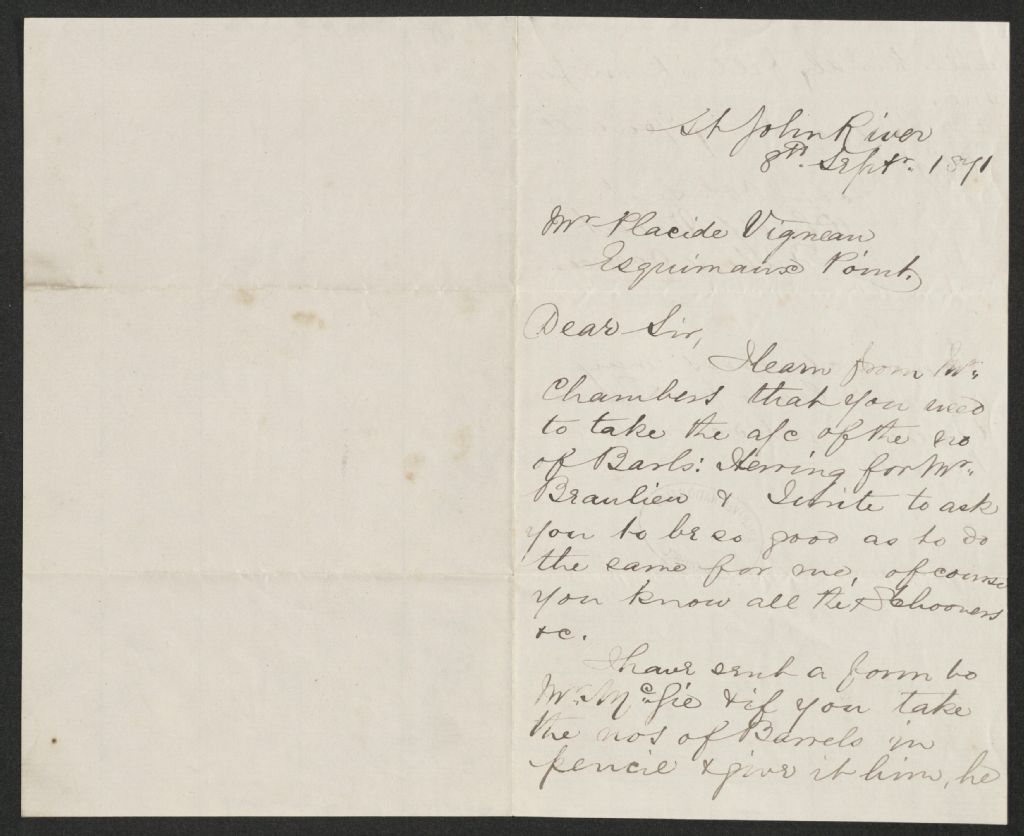 St John River
8th. Septr. 1871
Mr Placide Vigneau
Esquimaux Point.
Dear Sir,
I learn from Mr.
Chambers that you used
to take the a/c of the no
of Barls: Herring for Mr.
Beaulieu & I write to ask
you to be so good as to do
the same for me, of course
you know all the Schooners
&c.
I have sent a form to
Mr. McGie & if you take
the nos of Barrels in
pencil & give it him, he